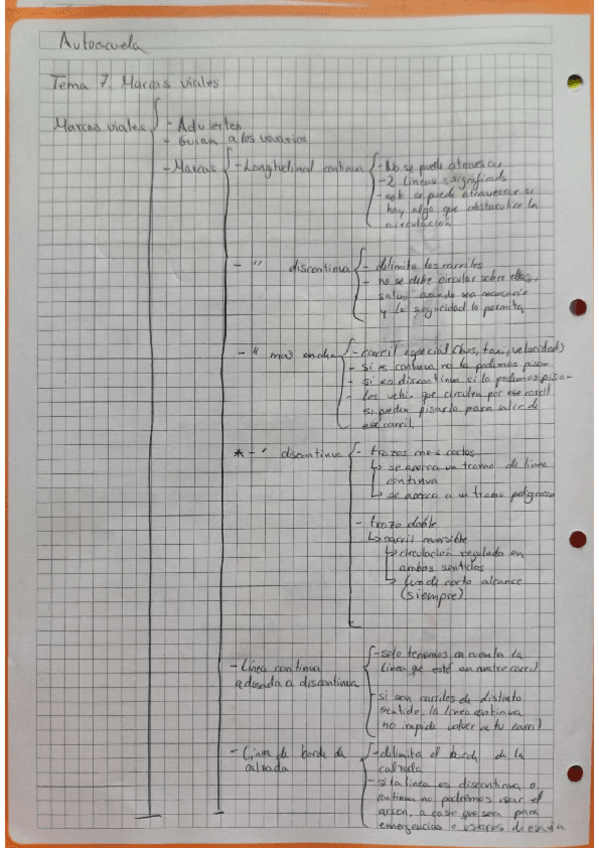 Autoescuela
Tema 7. Marcas viales
Marcas viales
- Advierten
- Guian a los usuarios
- Marcas
- Longitudinal continua
- No se puede atravesar
- 2 lineas = significado
- solo se puede atravesar si
hay algo que obstaculice la
circulación
- " discontinua
- delimita los carriles
- no se debe circular sobre ellas,
salvo cuando sea necesario
y la seguridad lo permita
- " mas ancha
- carril especial (bus, taxi, velocidad)
- si es continua no la podemos pisar
- si es discontinua si la podemos pisar
- los vehic. que circulen por ese carril
si pueden pisarla para salir de
ese carril.
* - " discontinua
- trazos mas cortos
↳ se acerca un tramo de linea
continua
↳ se acerca a un tramo peligroso
- trazo doble
↳ carril reversible
↳ circulación regulada en
ambos sentidos
↳ luz de corto alcance
(siempre)
- Línea continua
adosada a discontinua
- solo tenemos en cuenta la
linea que esté en nuestro carril
- si son carriles de distinto
sentido, la linea continua
no impide volver a tu carril
- Linea de borde de
calzada
- delimita el borde de la
calzada
- si la linea es discontinua o
continua no podremos usar el
arcen, a caso que sea para
emergencias o usuarios de